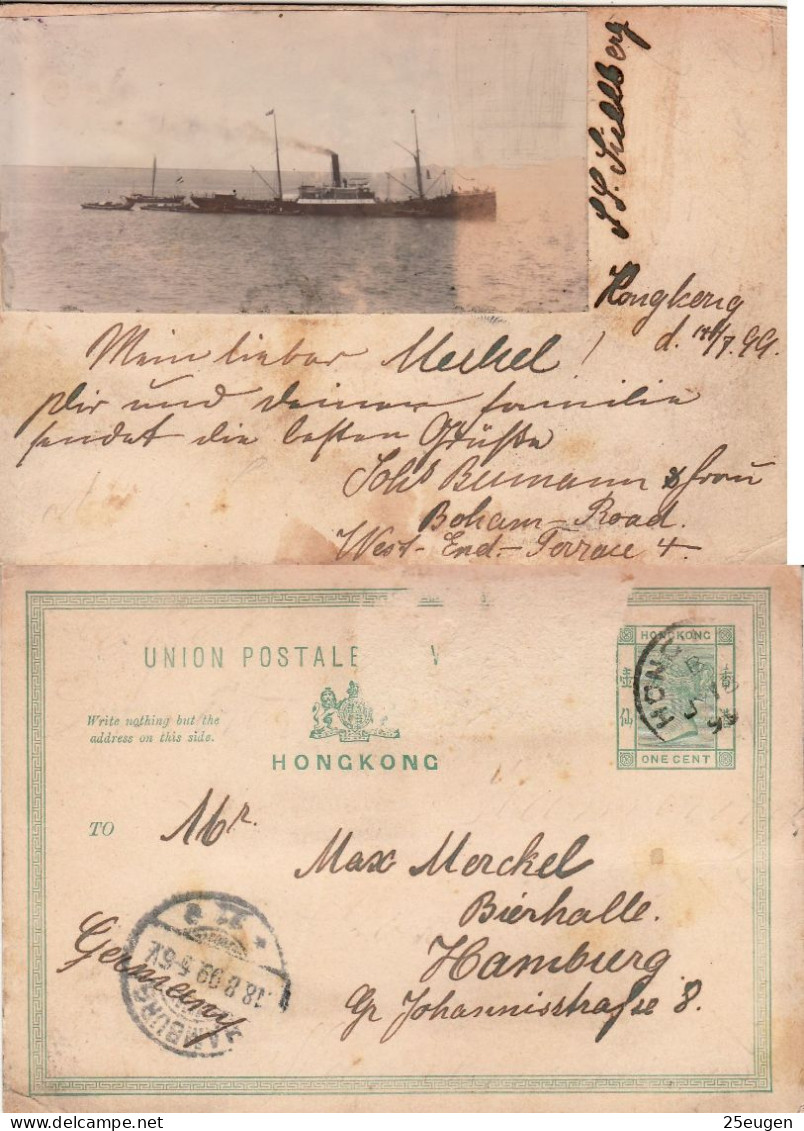 S.S. Süllberg
Hongkong
d. 14/7.99.
Mein lieber Merkel!
Dir und deiner Familie
sendet die besten Grüße
Johs Bumann & Frau
Boham-Road.
West-End-Terrace 4
UNION POSTALE
HONGKONG
ONE CENT
HONG
Write nothing but the
address on this side.
HONGKONG
TO
Mr.
Max Merckel
Bierhalle.
Hamburg
Gr Johannisstraße 8.
Germany
HAMBURG
18.8.99.5-6N.
25eugen